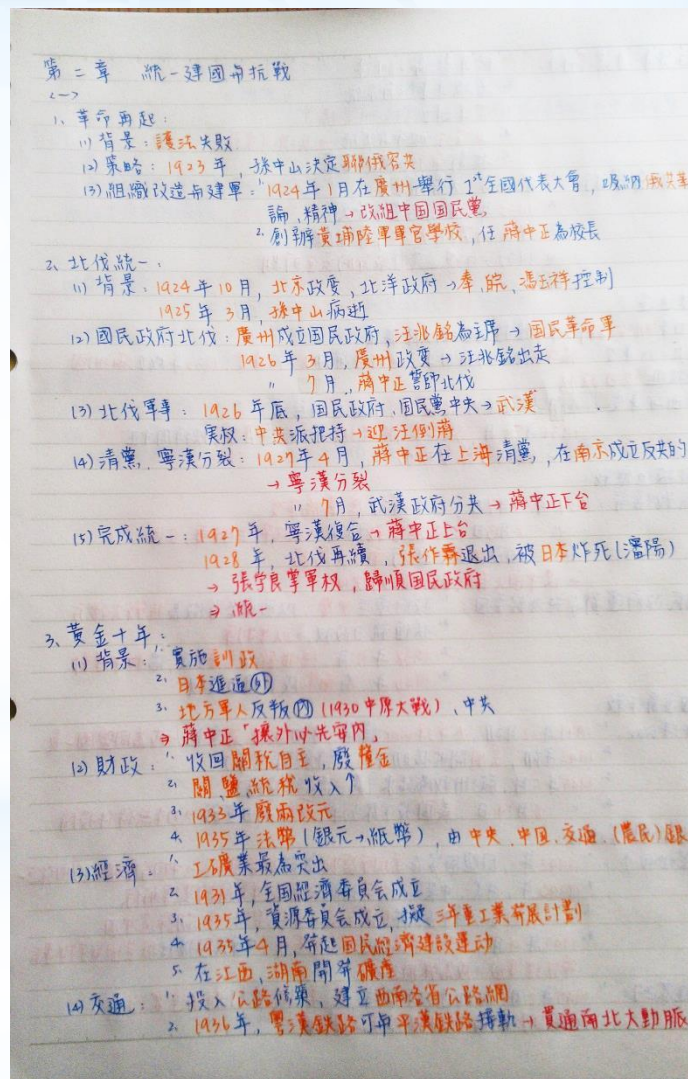 第二章 統一建國与抗戰
<一>
1、革命再起：
(1)背景：護法失敗
(2)策略：1923年，孫中山決定聯俄容共
(3)組織改造与建軍：1.1924年1月在廣州舉行 1st全國代表大會，吸納俄共革
論、精神→改組中国国民黨
2.創辦黃埔陸軍軍官學校，任蔣中正為校長
2、北伐統一：
(1)背景：1924年10月，北京政變，北洋政府→奉、皖、馮玉祥控制
1925年3月，孫中山病逝
(2)國民政府北伐：廣州成立国民政府，汪兆銘為主席→国民革命軍
1926年3月，廣州政變→汪兆銘出走
〃 7月，蔣中正誓師北伐
(3)北伐軍事：1926年底，国民政府、国民黨中央→武漢
実权：中共派把持→迎汪倒蔣
(4)清黨、寧漢分裂：1927年4月，蔣中正在上海清黨，在南京成立反共的
→寧漢分裂
〃 7月，武漢政府分共→蔣中正下台
(5)完成統一：1927年，寧漢復合→蔣中正上台
1928年，北伐再續，張作霖退出，被日本炸死(瀋陽)
→張学良掌軍权，歸順国民政府
⇒統一
3、黃金十年：
(1)背景：1.實施訓政
2.日本進逼(外)
3.地方軍人反叛(內)(1930中原大戰)、中共
⇒蔣中正「攘外必先安內」
(2)財政：1.收回關稅自主，廢釐金
2.關、鹽、統稅收入↑
3.1933年廢兩改元
4.1935年法幣(銀元→紙幣)，由中央、中国、交通、(農民)銀
(3)經濟：1.工礦業最為突出
2.1931年，全国經濟委員会成立
3.1935年，資源委員会成立，擬三年重工業發展計劃
4.1935年4月，發起国民經濟建設運动
5.在江西、湖南開發礦產
(4)交通：1.投入公路修築，建立西南各省公路網
2.1936年，粵漢鉄路可与平漢鉄路接軌→貫通南北大動脈